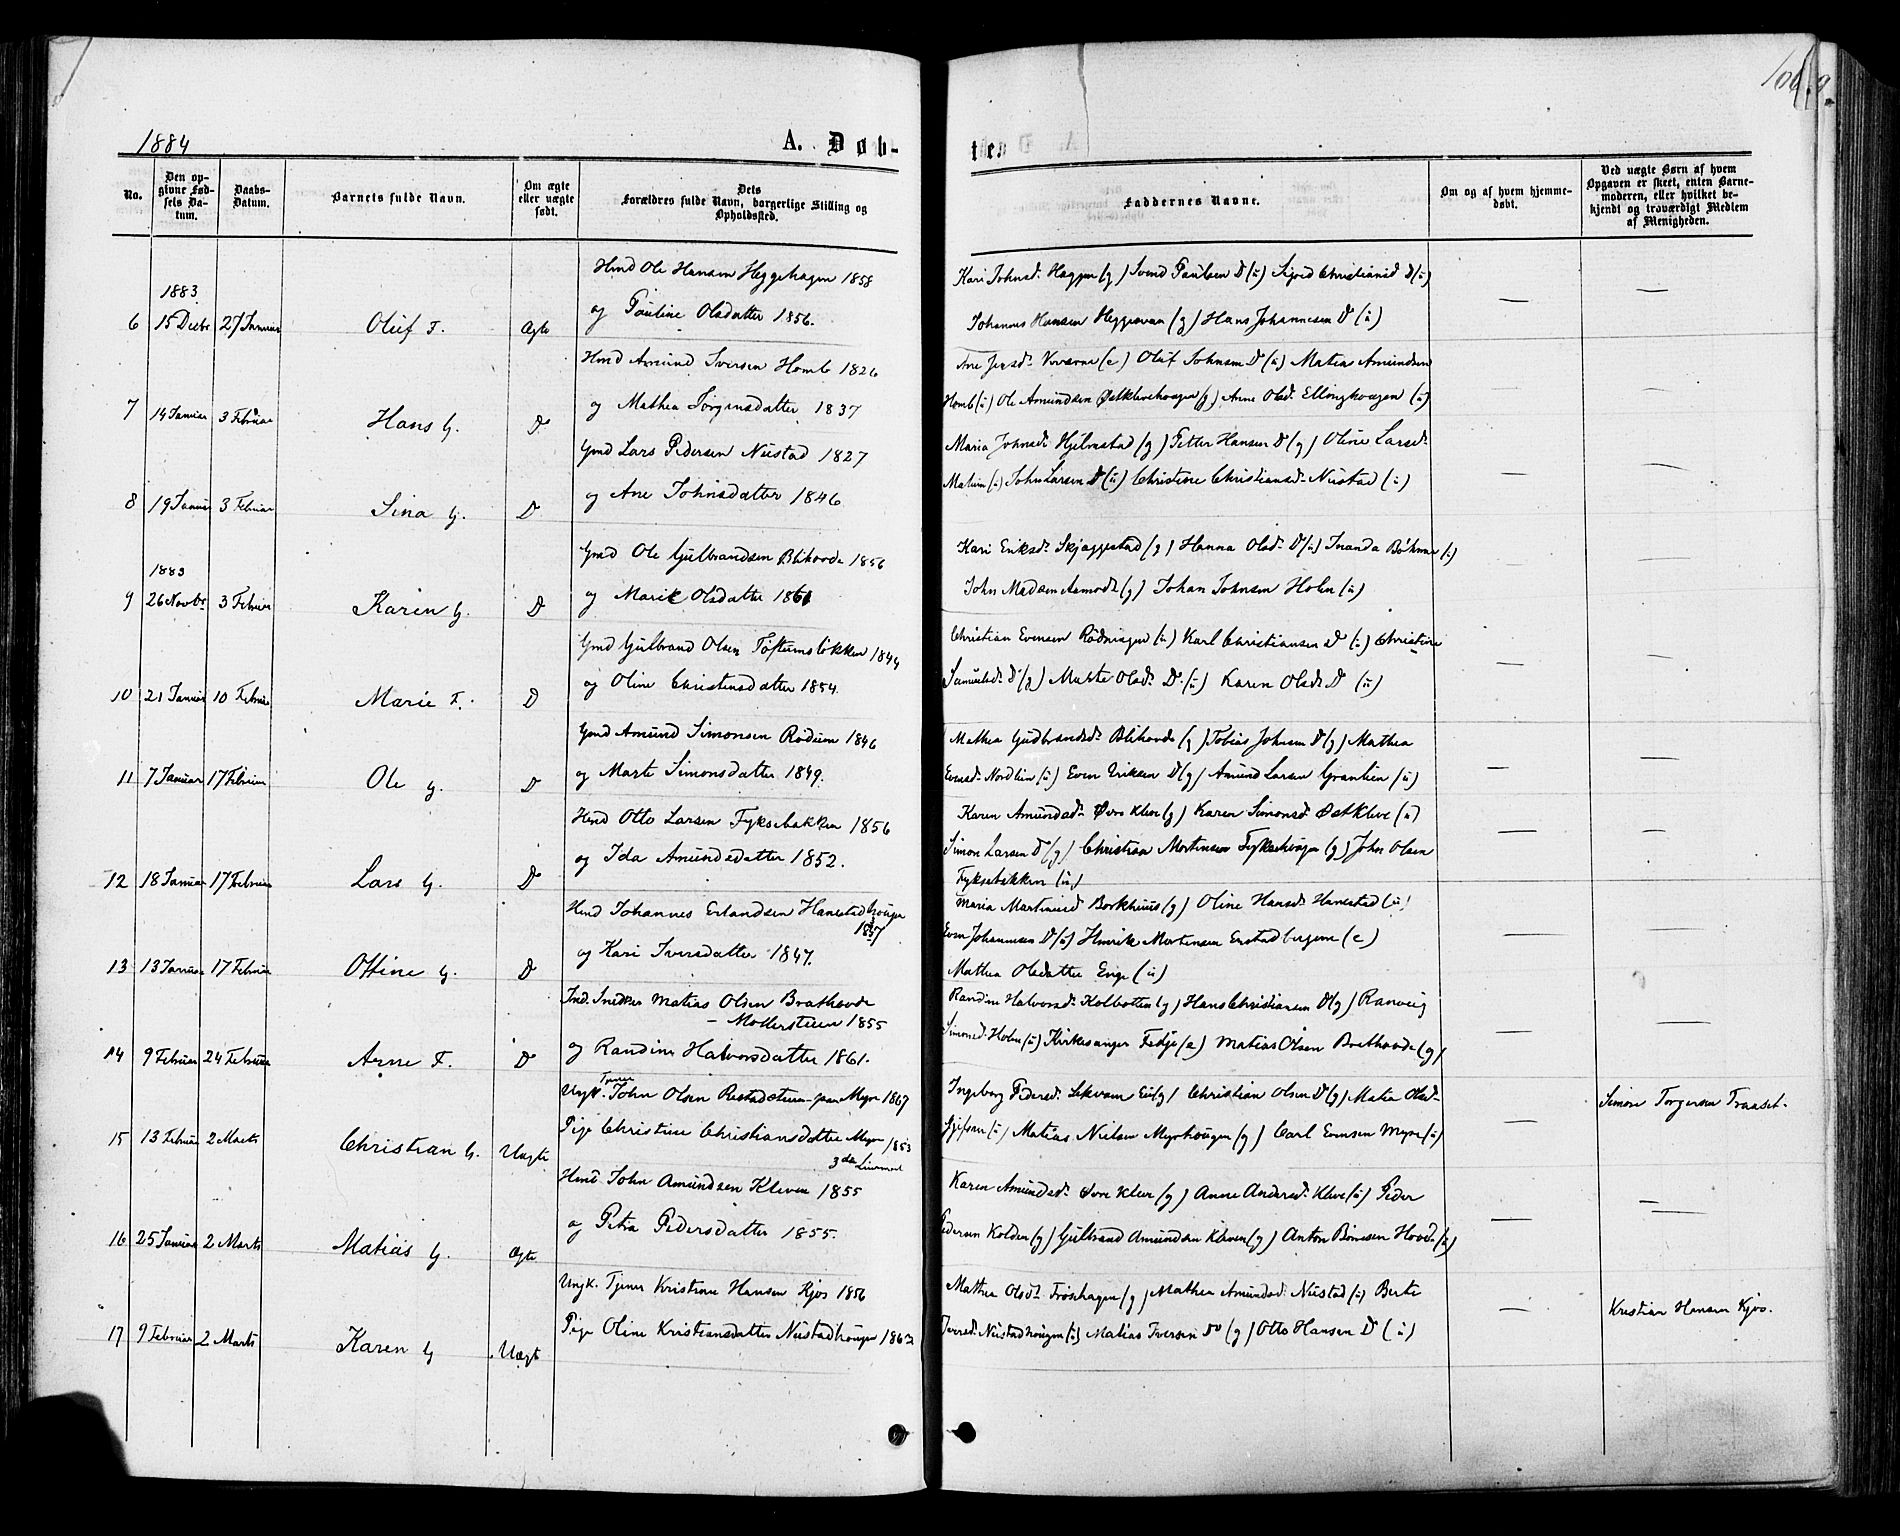 1884
A. Døb-
No.
Den op-
givne Fød-
sels Da-
tum.
Daabs-
Datum.
Barnets fulde Navn.
Om ægte
eller uægte
født.
Dets
Forældres fulde Navn, borgerlige Stilling og
Opholdssted.
Hmd Ole Hansen Heggehagen 1858
1883
og Pauline Olsdatter 1856.
6 15 Decbr 27 Januar Oluf F. Ægte
Hmd Amund Iversen Homb 1826
og Mathea Jørgensdatter 1837
7 14 Januar 3 Februar Hans G. D
Gmd Lars Pedersen Nustad 1827
og Ane Johnsdatter 1846
8 19 Januar 3 Februar Sina G. D
Gmd Ole Gulbrandsen Blihovde 1856
1883
og Marie Olsdatter 1861
9 26 Novbr 3 Februar Karen G. D
Gmd Gulbrand Olsen Toftumsløkken 1844
og Oline Christensdatter 1854.
10 21 Januar 10 Februar Marie F. D
Gmd Amund Simonsen Rødum 1846
og Marte Simonsdatter 1849.
11 7 Januar 17 Februar Ole G. D
Hmd Otto Larsen Fyksebakken 1856
og Ida Amundsdatter 1852.
12 18 Januar 17 Februar Lars G. D
Hmd Johannes Erlandsen Hanestadhougen
1837
og Kari Iversdatter 1847.
13 13 Januar 17 Februar Ottine G. D
Ind. Snedker Matias Olsen Brathovde
– Mollersteuen 1855
og Randine Halvorsdatter 1861.
14 9 Februar 24 Februar Arne F. D
Ungk. Tjener John Olsen Restadstuen paa Myre 1867
Pige Christine Christiansdatter Myre 1853
3de Leiermaal
15 13 Februar 2 Marts Christian G. Uægte
Hmd John Amundsen Kleven 1855
og Petra Pedersdatter 1855.
16 25 Januar 2 Marts Matias G. Ægte
Ungk. Tjener Kristian Hansen Kjos 1856
Pige Oline Kristiansdatter Nustadhougen 1862
17 9 Februar 2 Marts Karen G Uægt
te.
Faddernes Navne.
Om og af hvem hjemme-
døbt.
Ved uægte Børn af hvem
Opgaven er skeet, enten Barne-
moderen, eller hvilket be-
kjendt og troværdigt Medlem
af Menigheden.
Kari Johnsd. Haggen (g) Svend Paulsen D (u) Sigrid Christiansd D (u)
Johannes Hansen Heggesvea (g) Hans Johannesen D (u)
Ane Jensd. Kværne (e) Oluf Johnsen D (u) Matias Amundsen
Homb (u) Ole Amundsen Østklevehougen (g) Anne Olsd. Ellinghougen (u)
Maria Johnsd. Hjelmstad (g) Petter Hansen D (g) Oline Larsd.
(u) John Larsen D (u) Christine Christiansd. Nustad (u)
Kari Eriksd. Skjaggestad (g) Hanna Olsd. D (u) Inanda Bøhmer (u)
John Madsen Aamodt (g) Johan Johnsen Holen (u)
Christian Evensen Rødningen (u) Karl Christiansen D (u) Christine
Samuelsd. D (g) Marte Olsd. D. (u) Karen Olsd. D (u)
Mathea Gudbrandsd. Blihovde (g) Tobias Johnsen D (g) Mathea
Evensd. Nordlien (u) Even Eriksen D (g) Amund Larsen Granlien (u)
Karen Amundsd. Øvre Kleve (g) Karen Simonsd. Østkleve (u)
Simon Larsen D (g) Christian Mortensen Fyksehougen (g) John Olsen
Fyksebakken (u)
Maria Martinusd Borkhuus (g) Oline Hansd. Hanestad (u)
Even Johannesen D (u) Henrik Mortensen Enstadbergene (e)
Mathea Olsdatter Enge (u)
Randine Halvorsd. Kolbotten (g) Hans Christiansen D (g) Ranveig
Simonsd. Holen (u) Kirkesanger Fedje (e) Matias Olsen Brethovde (g)
Ingeborg Pedersd. Lekvam Eie (g) Christian Olsen D (g) Matia Olsd.
(u) Matias Nielsen Myrhougen (g) Carl Evensen Myre (u)
Simon Torgersen Traaset.
Karen Amundsd. Øvre Kleve (g) Anne Andersd. Kleve (u) Peder
Pedersen Kolden (g) Gulbrand Amundsen Kleven (g) Anton Bønesen Hovde (u)
Mathea Olsd. Frøshagen (g) Mathea Amundsd. Nustad (u) Berte
Iversd. Nustadhougen (u) Matias Iversen D (g) Otto Hansen D (u)
Kristian Hansen Kjos.